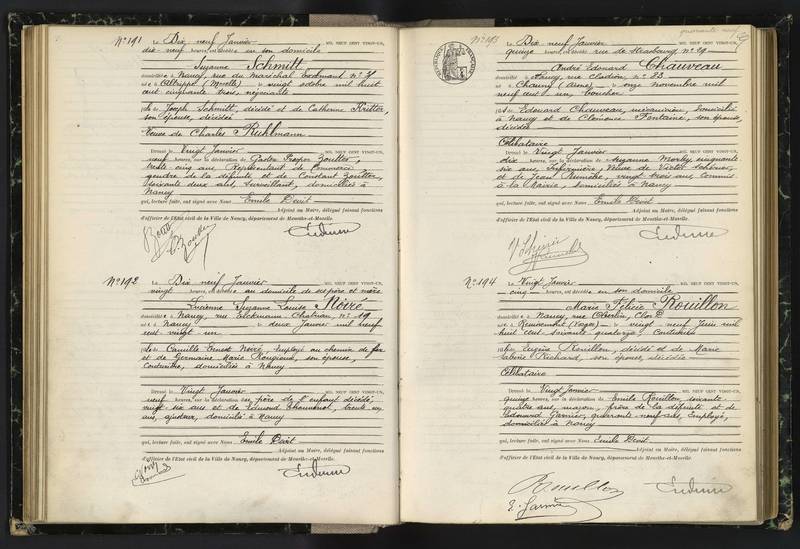 N° 191
Le Dix neuf Janvier MIL NEUF CENT VINGT-UN,
dix neuf heures, est décédée en son domicile
Suzanne Schmitt
domiciliée à Nancy, rue du Maréchal Exelmans n°
née à (Moselle) le vingt octobre mil huit
cent cinquante trois, négociante
fille de Joseph Schmitt, décédé et de Catherine Kritter,
son épouse, décédée
Veuve de Charles Ruhlmann
Dressé le Vingt Janvier MIL NEUF CENT VINGT-UN,
neuf heures, sur la déclaration de Gaston Prosper
trente cinq ans, Représentant de Commerce
gendre de la défunte et de Constant
soixante deux ans, Surveillant, domiciliés à
Nancy
qui, lecture faite, ont signé avec Nous Emile Devit
Adjoint au Maire, délégué faisant fonctions
d'officier de l'État civil de la Ville de Nancy, département de Meurthe-et-Moselle.
N° 192
Le Dix neuf Janvier MIL NEUF CENT VINGT-UN,
vingt heures, est décédée au domicile de ses père et mère
Lucienne Suzanne Louise Noiré
domiciliée à Nancy, rue Erckmann Chatrian, n° 19
née à Nancy le deux Janvier mil neuf
cent vingt un
fille de Camille Ernest Noiré, employé au chemin de fer
et de Germaine Marie Rougieux, son épouse,
Couturière, domiciliés à Nancy
Dressé le Vingt Janvier MIL NEUF CENT VINGT-UN,
neuf heures, sur la déclaration du père de l'enfant décédée,
vingt six ans et de Edmond trente un
ans, ajusteur, domicilié à Nancy
qui, lecture faite, ont signé avec Nous Emile Devit
Adjoint au Maire, délégué faisant fonctions
d'officier de l'État civil de la Ville de Nancy, département de Meurthe-et-Moselle.
quarante neuf
N° 193
Le Dix neuf Janvier MIL NEUF CENT VINGT-UN,
quinze heures, est décédé rue de Strasbourg, n° 19
André Edouard Chauveau
domicilié à Nancy rue Clodion n° 23
né à Chauny (Aisne) le onze novembre mil
neuf cent un, boucher
fils de Edouard Chauveau, mécanicien, domicilié
à Nancy et de Clémence Fontaine, son épouse,
décédée
Célibataire
Dressé le Vingt Janvier MIL NEUF CENT VINGT-UN,
dix heures, sur la déclaration de Suzanne cinquante
six ans, Infirmière, Veuve de Victor
et de Jean vingt trois ans, Commis
à la Mairie, domiciliés à Nancy
qui, lecture faite, ont signé avec Nous Emile Devit
Adjoint au Maire, délégué faisant fonctions
d'officier de l'État civil de la Ville de Nancy, département de Meurthe-et-Moselle.
N° 194
Le Vingt Janvier MIL NEUF CENT VINGT-UN,
cinq heures, est décédée en son domicile
Marie Félicie Rouillon
domiciliée à Nancy, rue Oberlin,
née à Remiremont (Vosges) le vingt neuf Juin mil
huit cent soixante quatorze, Couturière
fille de Eugène Rouillon, décédé et de Marie
Sabine Richard, son épouse, décédée
Célibataire
Dressé le Vingt Janvier MIL NEUF CENT VINGT-UN,
quinze heures, sur la déclaration de Emile Rouillon, soixante
quatre ans, maçon, frère de la défunte et de
Edouard Garnier, quarante neuf ans, Employé,
domiciliés à Nancy
qui, lecture faite, ont signé avec Nous Emile Devit
Adjoint au Maire, délégué faisant fonctions
d'officier de l'État civil de la Ville de Nancy, département de Meurthe-et-Moselle.
Rouillon
E. Garnier